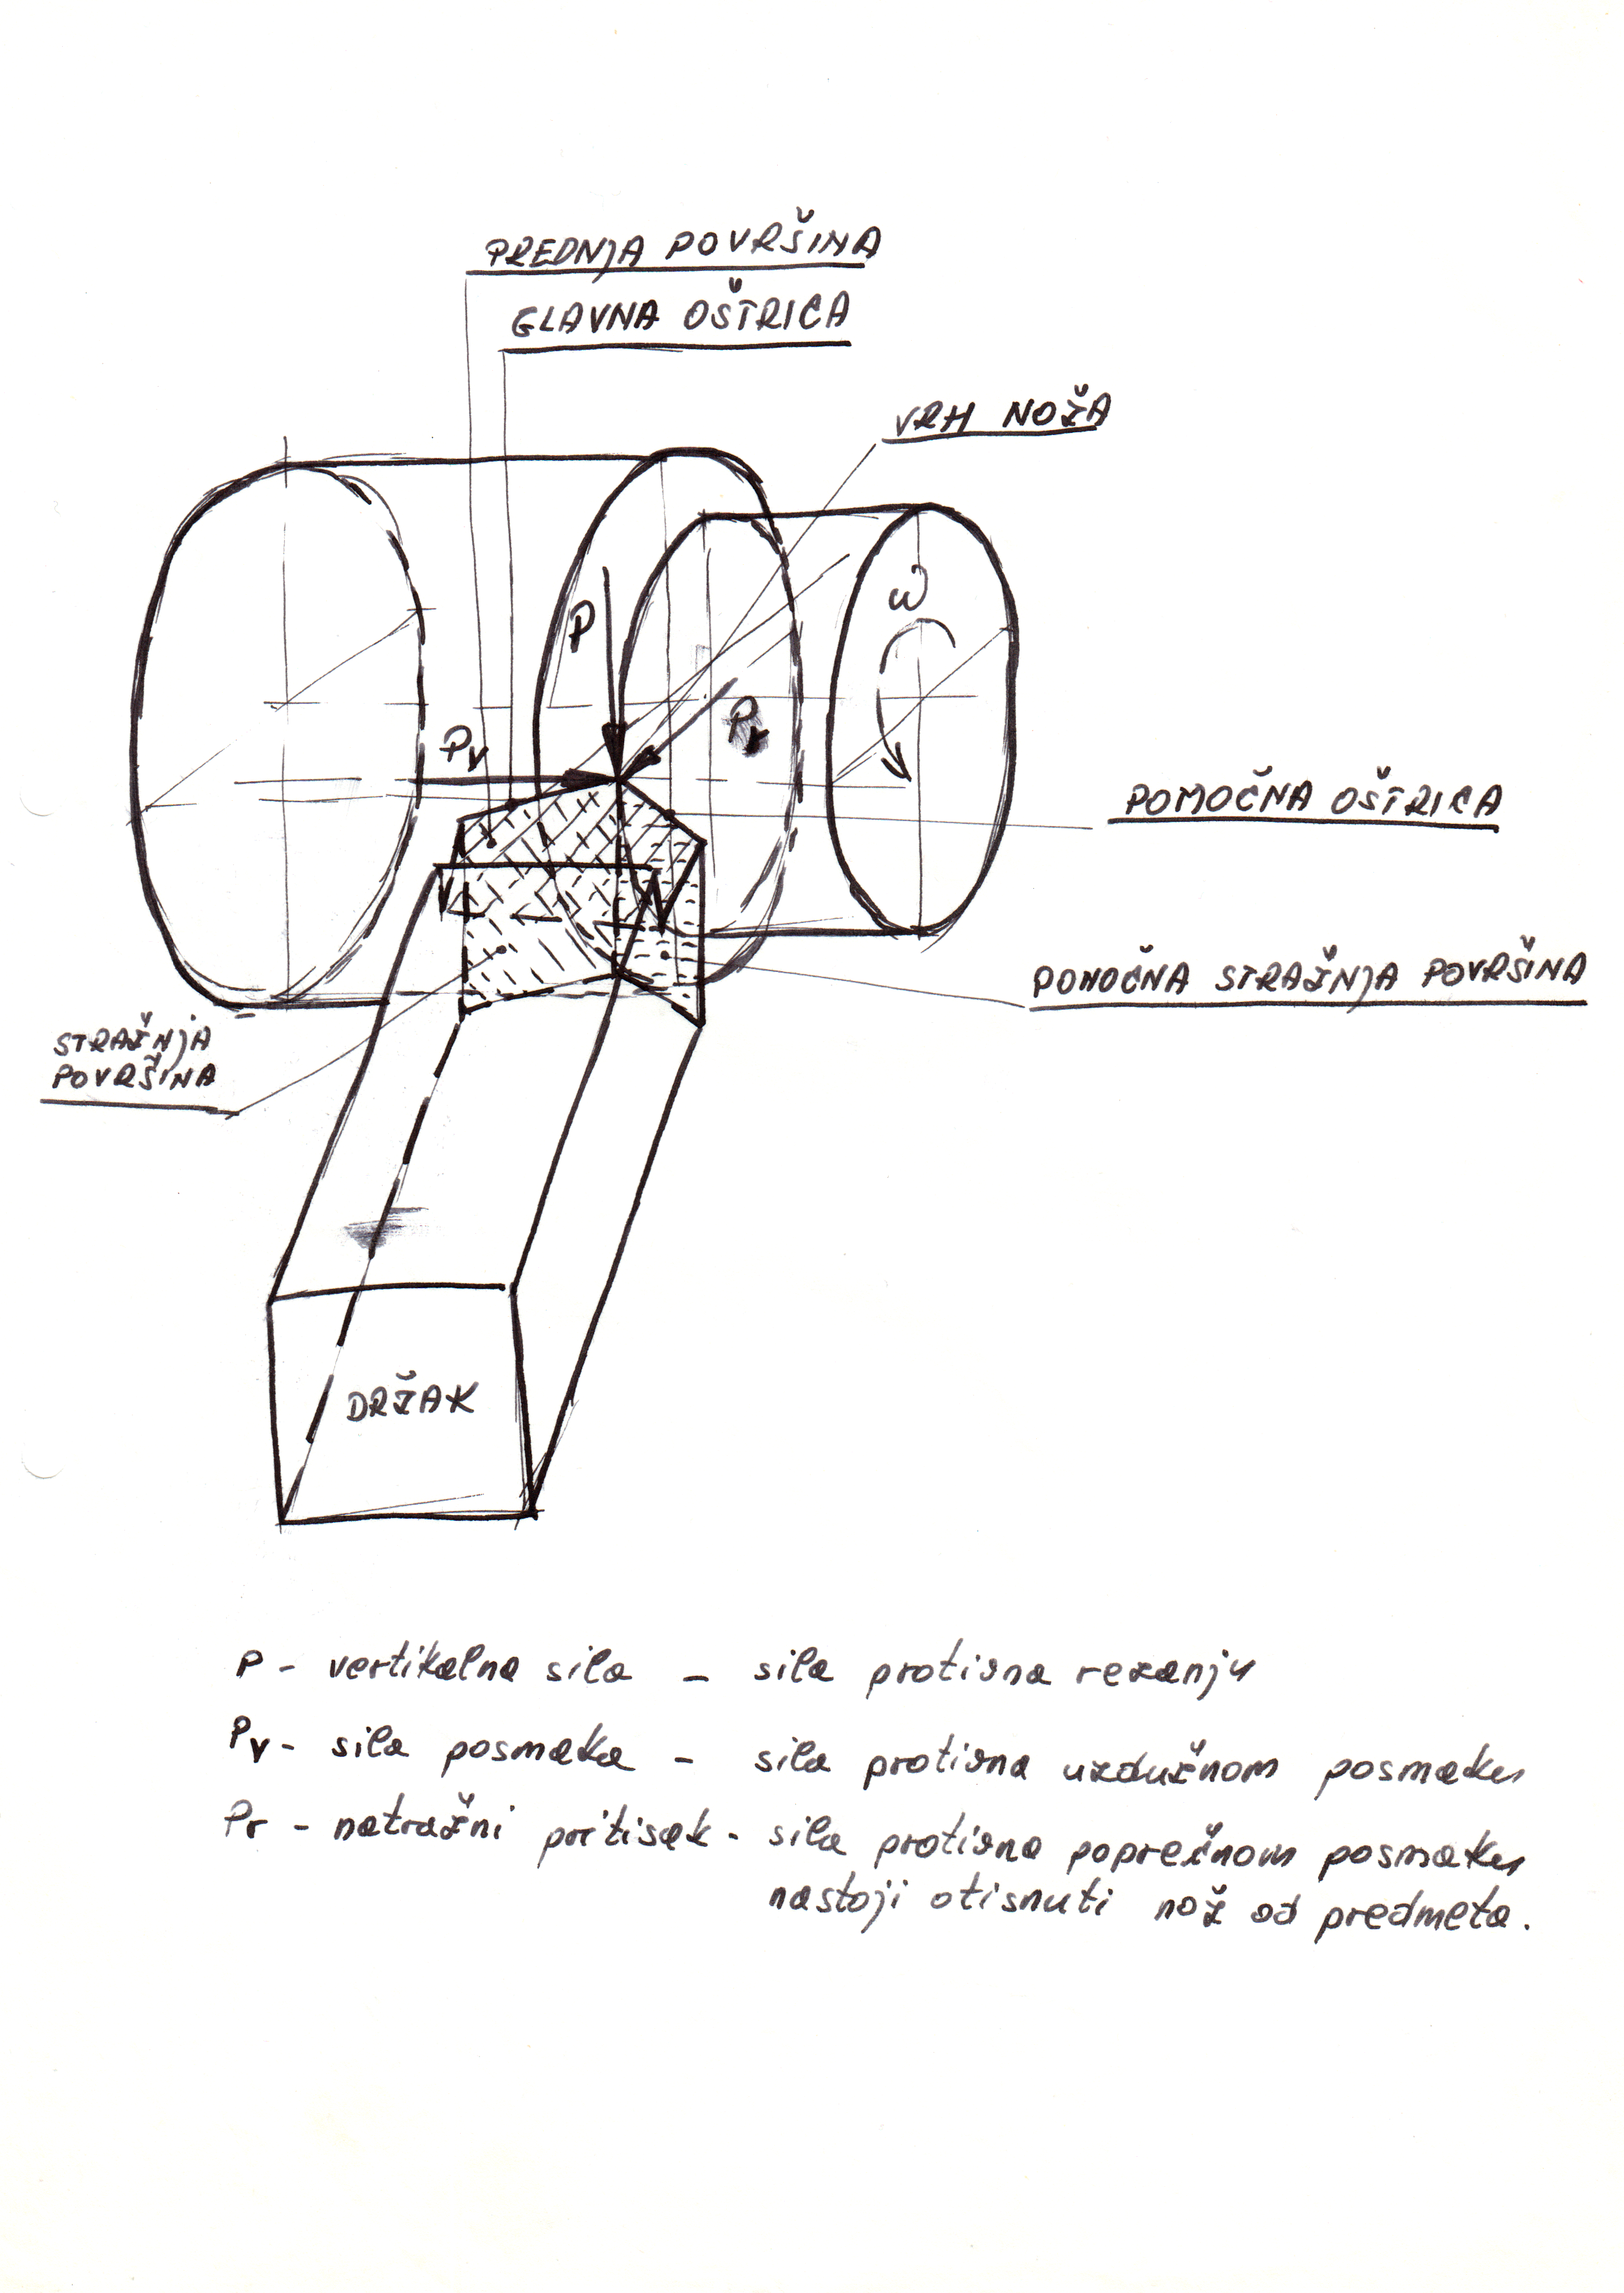 PREDNJA POVRŠINA
GLAVNA OŠTRICA
VRH NOŽA
ω
P
Pr
Pv
POMOČNA OŠTRICA
POMOČNA STRAŽNJA POVRŠINA
STRAŽNJA
POVRŠINA
DRŽAK
P - vertikalna sila - sila protivna rezanju
Pv - sila posmaka - sila protivna uzdužnom posmaku
Pr - natražni pritisak - sila protivna poprečnom posmaku
nastoji otisnuti nož od predmeta.